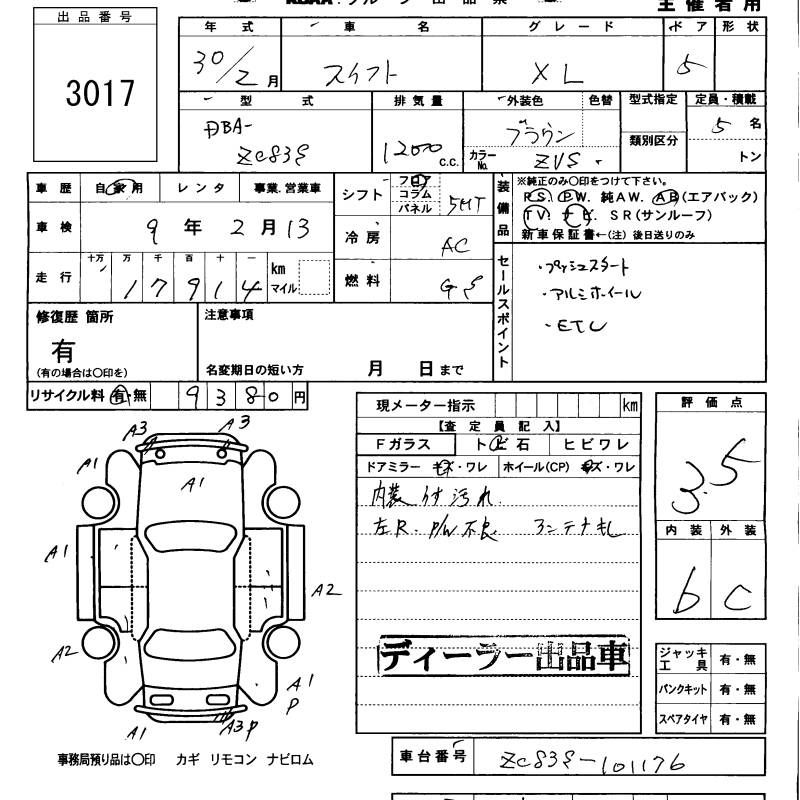 主催者用
出品番号
3017
年式 車名 グレード ドア 形状
30/2月 スイフト XL 5
型式 排気量 外装色 色替 型式指定 定員・積載
DBA-
ZC83S 1200 c.c. ブラウン 5名
カラーNo. ZVS 類別区分 トン
車歴 自家用 レンタ 事業.営業車
シフト フロア コラム パネル 5MT
装備品 ※純正のみ〇印をつけて下さい。
P.S. P.W. 純AW. AB(エアバック)
TV. ナビ. SR(サンルーフ)
新車保証書←(注) 後日送りのみ
車検 9年2月13
冷房 AC
走行 十万 万 千 百 十 一 km マイル
17914
燃料 GS
セールスポイント
・プッシュスタート
・アルミホイール
・ETC
修復歴 箇所 注意事項
有
(有の場合は〇印を) 名変期日の短い方 月 日まで
リサイクル料 有・無 9380円
現メーター指示 km
評価点
3.5
【査定員記入】
Fガラス トビ石 ヒビワレ
ドアミラー キズ・ワレ ホイール(CP) キズ・ワレ
内装 イタ汚れ
左R. P/W不良 アンテナ無し
内装 外装
b C
A3 A3
A1
A1
A1
A2
A2
A1
P
A1
A3P
ディーラー出品車
ジャッキ工具 有・無
パンクキット 有・無
スペアタイヤ 有・無
事務局預り品は〇印 カギ リモコン ナビロム
車台番号 ZC83S-101176